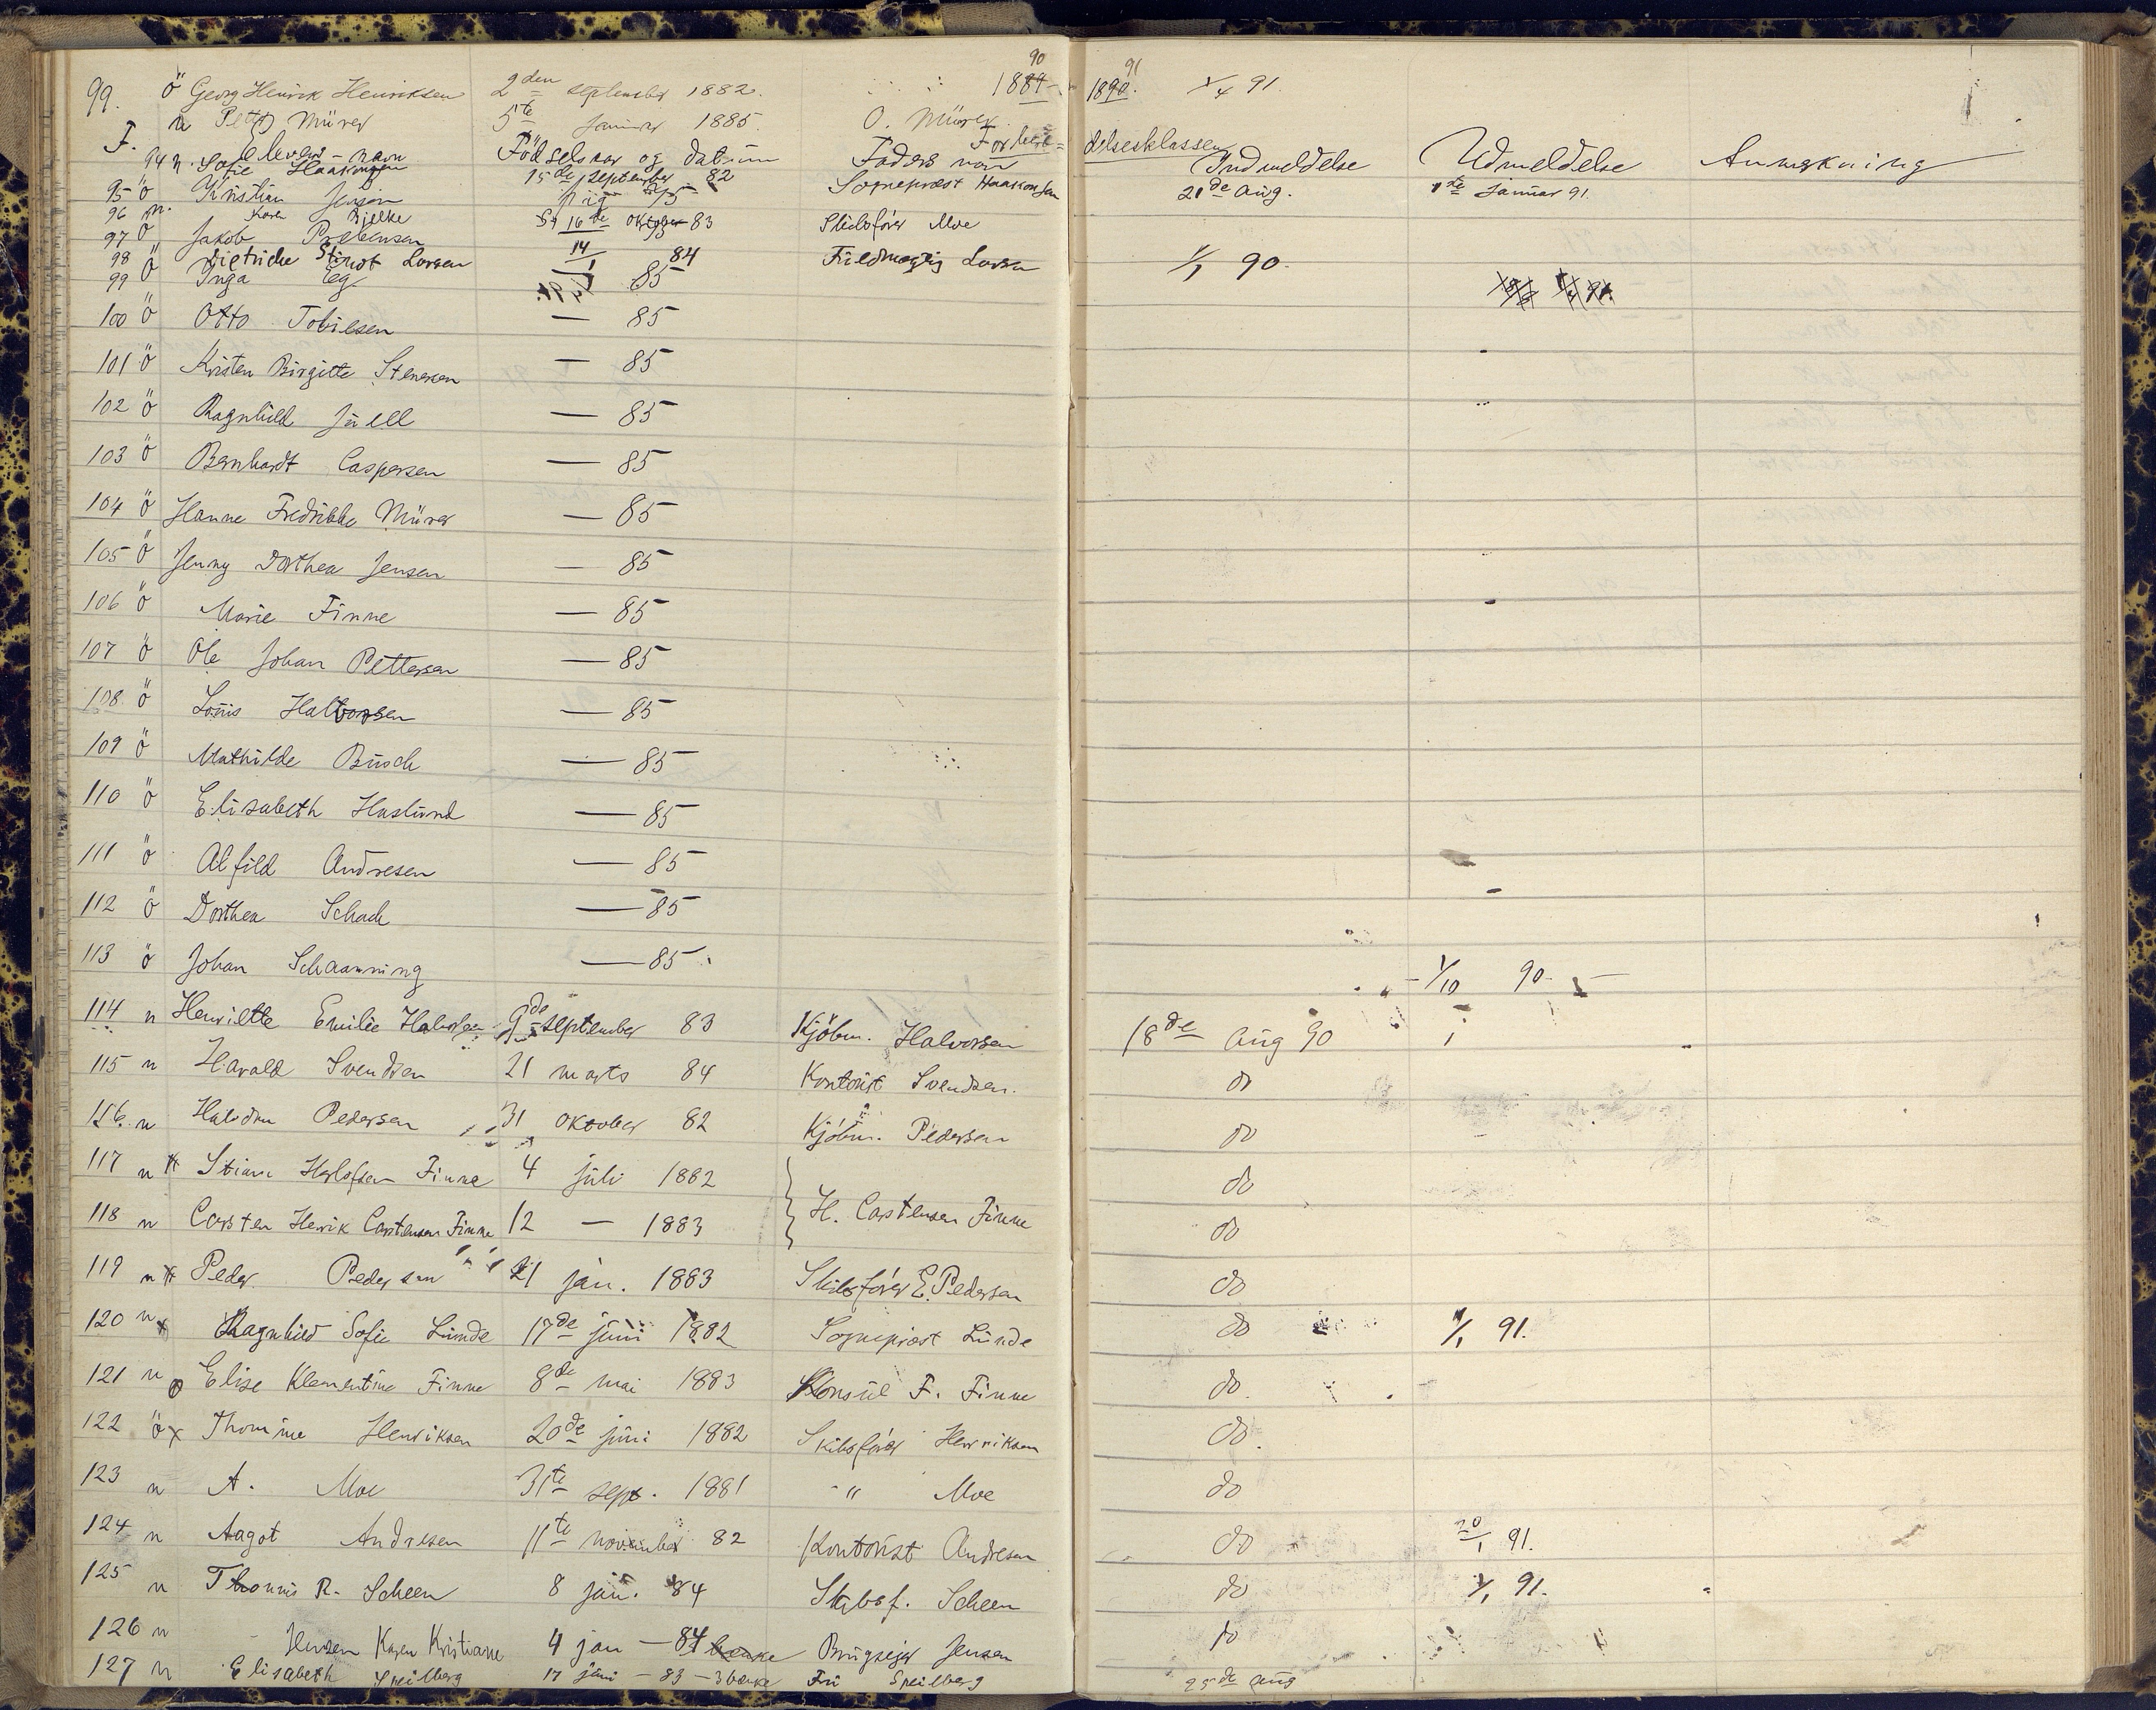 90 91
99. ö Georg Henrik Henriksen 2den september 1882. 1889 1890. 1/4 91
n Petter Mürer 5te Januar 1885. O. Mürer
F. Forberedelsesklassen
Elevens navn Födselsaar og datum Faders navn Indmeldelse Udmeldelse Anmerkning
94 n. Sofie Haakonsen 15de september 82 Sogneprest Haakonsen 21de aug. 1ste Januar 91.
95 ö Kristian Jensen
96 n. Karen Bjelke 16de oktober 83 Skibsförer Moe
97 ö Jakob Prebensen
98 ö Dietriche Stindt Larsen 14/1 84 Fuldmægtig Larsen 1/1 90.
99 ö Inga Eeg. 85
100 ö Otto Tobiesen — 85
101 ö Kristen Birgitte Stenersen — 85
102 ö Ragnhild Juell — 85
103 ö Bernhardt Caspersen — 85
104 ö Hanne Fredrikke Mürer — 85
105 ö Jenny Dorthea Jensen — 85
106 ö Marie Finne — 85
107 ö Ole Johan Pettersen — 85
108 ö Louis Halvorsen — 85
109 ö Mathilde Busch — 85
110 ö Elisabeth Haslund — 85
111 ö Alfild Andresen — 85
112 ö Dorthea Schack — 85
113 ö Johan Schaanning — 85 1/10 90.
114 n Henriette Emilie Halvorsen 9de september 83 Kjöbm. Halvorsen 18de aug 90
115 n Harald Svendsen 21 marts 84 Kontorist Svendsen. do
116. n Halvdan Pedersen 31 oktober 82 Kjöbm. Pedersen do
117 n Stian Herlofsen Finne 4 juli 1882 do
118 n Carsten Henrik Carstensen Finne 12 — 1883 } H. Carstensen Finne do
119 n Peder Pedersen 21 jan. 1883 Skibsförer E. Pedersen do
120 n x Ragnhild Sofie Lunde 17de juni 1882 Sogneprest Lunde do 1/1 91.
121 n Elise Klementine Finne 8de mai 1883 Konsul F. Finne do.
122 ö x Thomine Henriksen 20de juni 1882 Skibsförer Henriksen do.
123 n A. Moe 31te sept. 1881 " Moe do
124 n Aagot Andresen 11te november 82 Kontorist Andresen do 20/1 91.
125 n Thomis R. Scheen 8 jan. 84 Skibsf. Scheen do 1/1 91.
126 n Jensen Karen Kristiane 4 jan — 84 Brugseier Jensen do
127 n Elisabeth Speilberg 17 juni — 83 — 3 bænke Fru Speilberg 25de aug